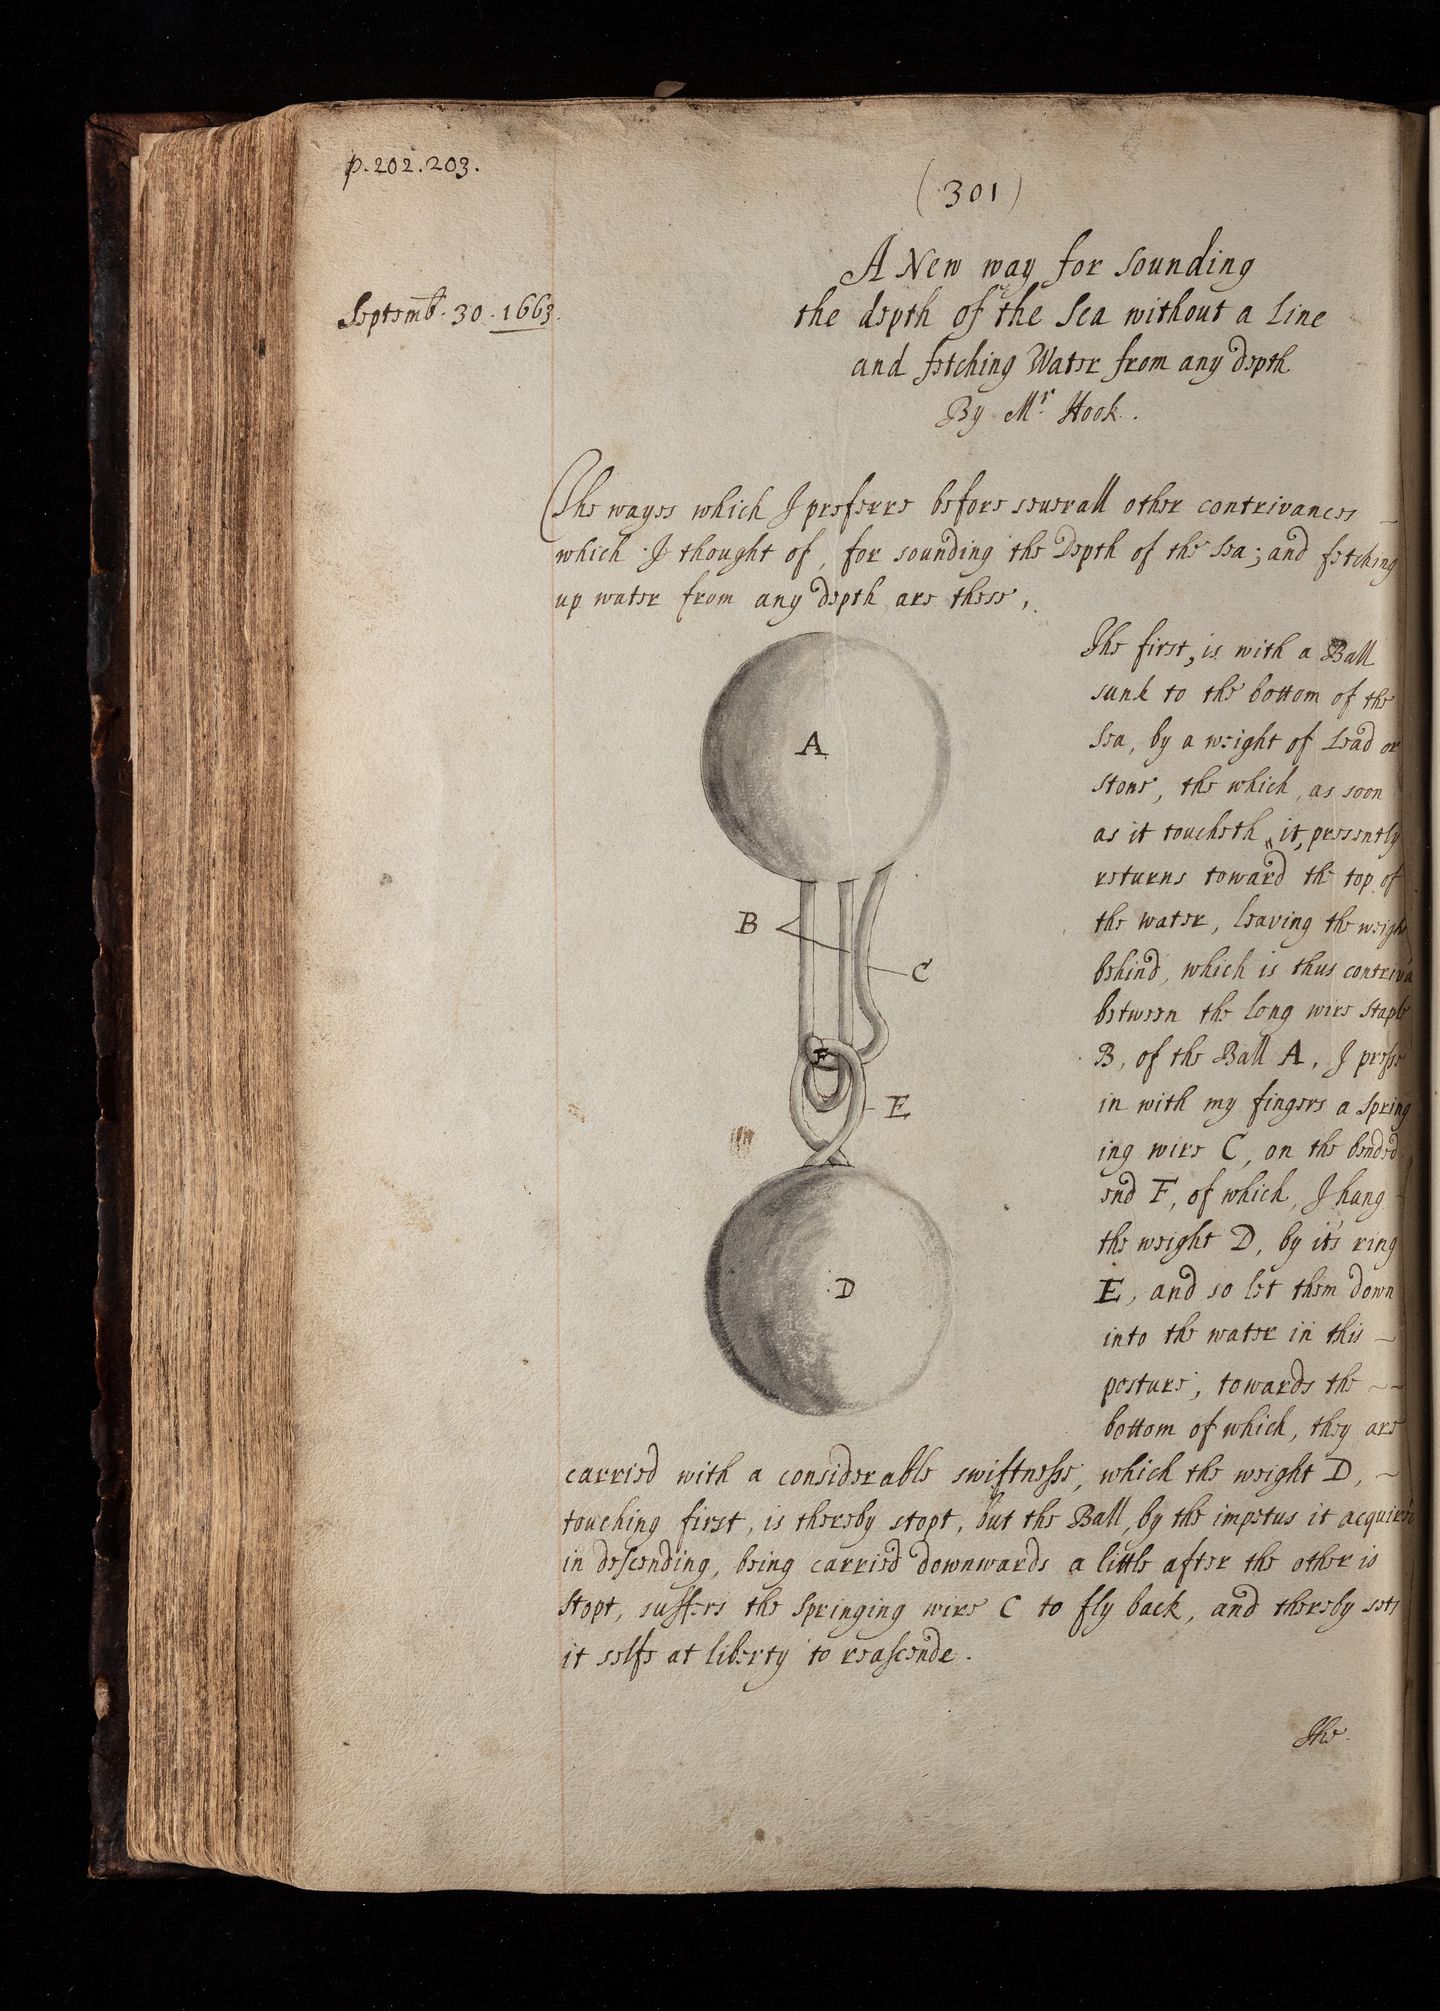 p. 202. 203.
(301)
A New way for sounding
Septemb. 30. 1663.
the depth of the Sea without a Line
and fetching Water from any depth
By Mr. Hook.
The wayes which I preferre before severall other contrivances
which I thought of, for sounding the Depth of the Sea; and fetching
up water from any depth are these,
The first, is with a Ball
sunk to the bottom of the
Sea, by a weight of Lead or
stone, the which, as soon
as it toucheth it, presently
returns toward the top of
the water, leaving the weight
behind, which is thus contriv'd
between the long wire staple
B, of the Ball A, I presse
in with my fingers a spring
ing wire C, on the bended
end F, of which, I hang
the weight D, by it's ring
E, and so let them down
into the water in this
posture, towards the
bottom of which, they are
carried with a considerable swiftnesse, which the weight D,
touching first, is thereby stopt, but the Ball, by the impetus it acquired
in descending, being carried downwards a little after the other is
stopt, suffers the springing wire C to fly back, and thereby sets
it selfe at liberty to reascende.
The
A
B
C
F
E
D